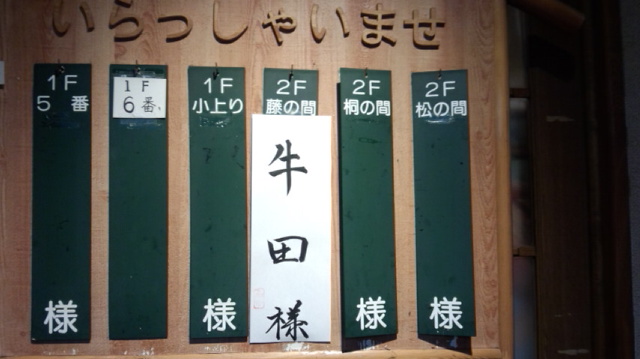 いらっしゃいませ
1F
5 番
様
1F
6番
1F
小上り
様
2F
藤の間
牛田様
2F
桐の間
様
2F
松の間
様